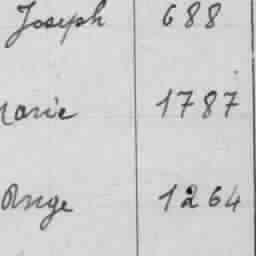 Joseph 688
Marie 1787
Ange 1264